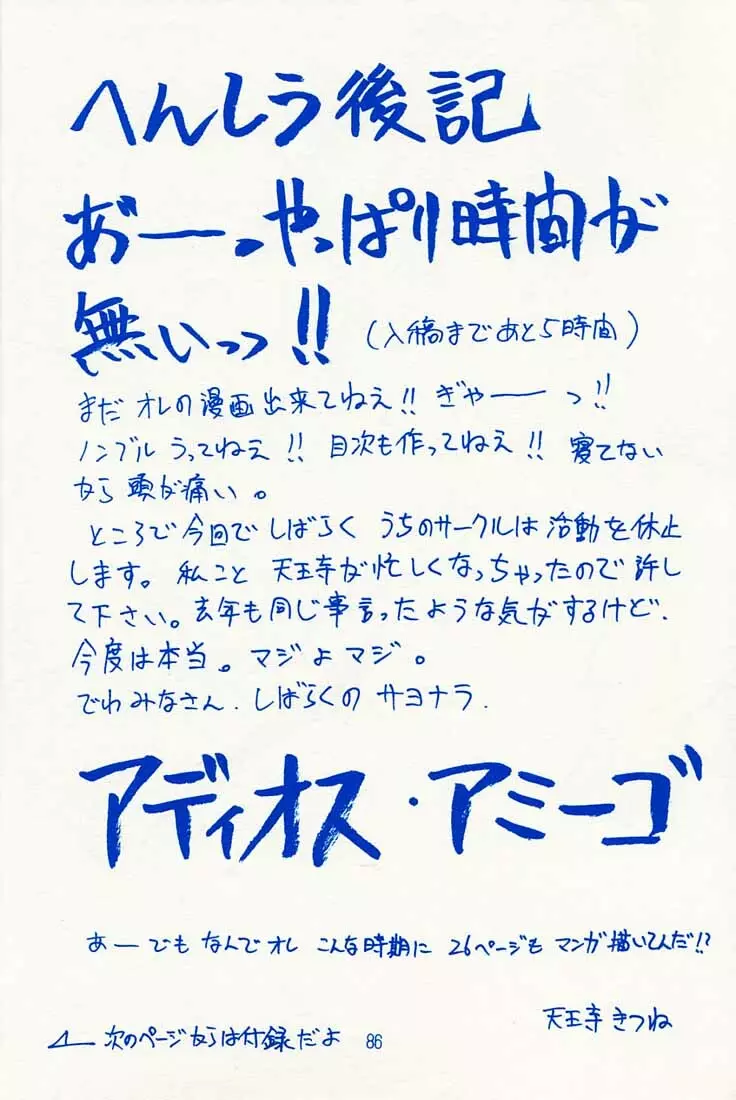 へんしう後記
あ゛ーっやっぱり時間が
無いっっ!!（入稿まであと5時間）
まだオレの漫画出来てねえ!! ぎゃーーっ!!
ノンブルうってねえ!! 目次も作ってねえ!! 寝てない
から頭が痛い。
ところで今回でしばらく うちのサークルは活動を休止
します。私こと 天王寺が忙しくなっちゃったので許し
て下さい。去年も同じ事言ったような気がするけど.
今度は本当。マジよマジ。
でわみなさん.しばらくの サヨナラ.
アディオス・アミーゴ
あーでもなんでオレ こんな時期に 26ページも マンガ描いてんだ!?
天王寺きつね
次のページからは付録だよ 86